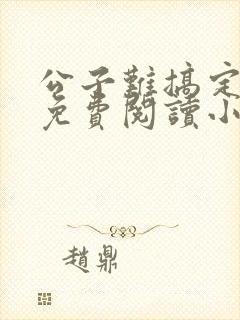 公子難搞定
免費閱讀小
趙鼎